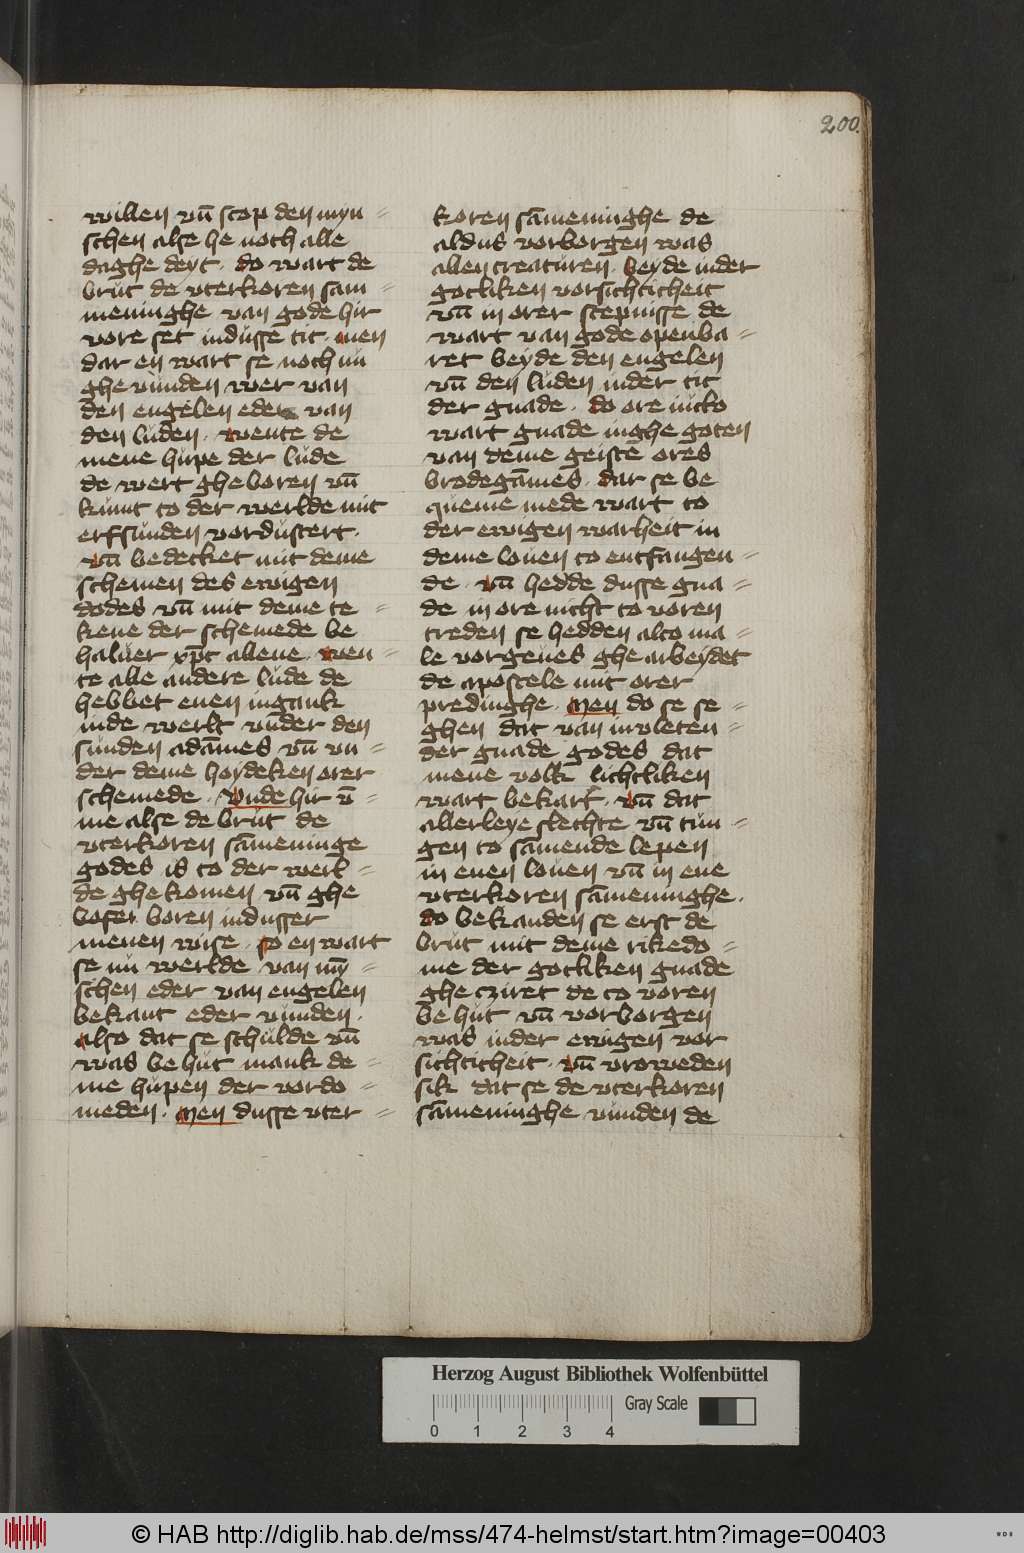 200.
willen vn̄ scop den myn =
schen alse he noch alle
daghe deyt · do wart de
brůt de vterkoren sam =
meninghe van gode hir
vore set in důsse tit · men
dar en wart se noch nů
ghe vunden wer van
den engelen eder van
den lůden · wente de
mene hůpe der lůde
de wert ghe boren vn̄
kůmt to der werlde mit
erfsůnden vordůstert ·
vn̄ bedecket mit deme
schemen des ewigen
dodes vn̄ mit deme te =
kene der schemede be
haluer xp̄c allene · wen =
te alle andere lůde de
hebbet enen ingank
inde werlt vnder den
sůnden adām̄es vn̄ vn =
der deme hoydeken orer
schemede · Vnde hir v̄ =
me alse de brůt de
vterkoren sām̄eninge
godes is to der werl =
de ghe komen vn̄ ghe
boren in důsser
menen wise · so en wart
se nů werlde van mȳ =
schen eder van engelen
bekant eder vunden ·
also dat se schůlde vn̄
was be hůt mank de =
me hůpen der vordo =
meden · Men dusse vter =
koren sām̄eninghe de
aldus vorborgen was
allen creatůren · beyde in der
gotliken vorsichticheit
vn̄ in orer scepnisse de
wart van gode openba =
ret beyde den engelen
vn̄ den lůden in der tit
der gnade · do ore iucko
wart gnade in ghe goten
van deme geiste ores
brodegām̄es · dar se be
queme mede wart to
der ewigen warheit in
deme louen to entfangen =
de · vn̄ hedde dusse gna =
de in ore nicht to voren
treden se hedden alto ma =
le vorgeues ghe arbeydet
de apostele mit orer
predinghe · Men do se se =
ghen dat van invleten =
der gnade godes dat
mene volk lichtliken
wart bekart · vn̄ dat
allerleye slechte vn̄ tun =
gen to sām̄ende lepen
in enen louen vn̄ in ene
vterkoren sām̄eninghe ·
do bekanden se erst de
brůt mit deme rikedo =
me der gotliken gnade
ghe cziret de to voren
be hůt vn̄ vorborgen
was in der ewigen vor
sichticheit · vn̄ vroweden
sik dat se de vterkoren
sām̄eninghe vunden de
Herzog August Bibliothek Wolfenbüttel
Gray Scale
0 1 2 3 4
© HAB http://diglib.hab.de/mss/474-helmst/start.htm?image=00403